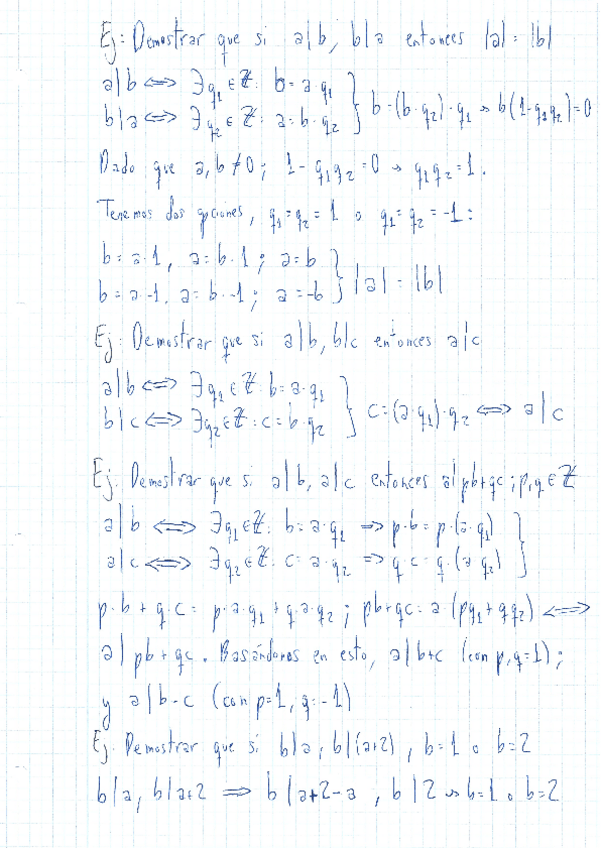 Ej: Demostrar que si a|b, b|a entonces |a| = |b|
a|b ⟺ ∃q₁∈ℤ: b = a·q₁ } b = (b·q₂)·q₁ → b(1-q₁q₂)=0
b|a ⟺ ∃q₂∈ℤ: a = b·q₂
Dado que a,b≠0; 1-q₁q₂=0 → q₁q₂=1.
Tenemos dos opciones, q₁=q₂=1 o q₁=q₂=-1:
b=a·1, a=b·1; a=b } |a| = |b|
b=a·-1, a=b·-1; a=-b
Ej: Demostrar que si a|b, b|c entonces a|c
a|b ⟺ ∃q₁∈ℤ: b=a·q₁ } c=(a·q₁)·q₂ ⟺ a|c
b|c ⟺ ∃q₂∈ℤ: c=b·q₂
Ej. Demostrar que si a|b, a|c entonces a|pb+qc; p,q∈ℤ
a|b ⟺ ∃q₁∈ℤ: b=a·q₁ ⟹ p·b=p·(a·q₁) }
a|c ⟺ ∃q₂∈ℤ: c=a·q₂ ⟹ q·c=q·(a·q₂)
p·b+q·c = p·a·q₁+q·a·q₂; pb+qc=a·(pq₁+qq₂) ⟺
a|pb+qc. Basándonos en esto, a|b+c (con p,q=1);
y a|b-c (con p=1, q=-1)
Ej. Demostrar que si b|a, b|(a+2), b=1 o b=2
b|a, b|a+2 ⟹ b|a+2-a, b|2 → b=1 o b=2